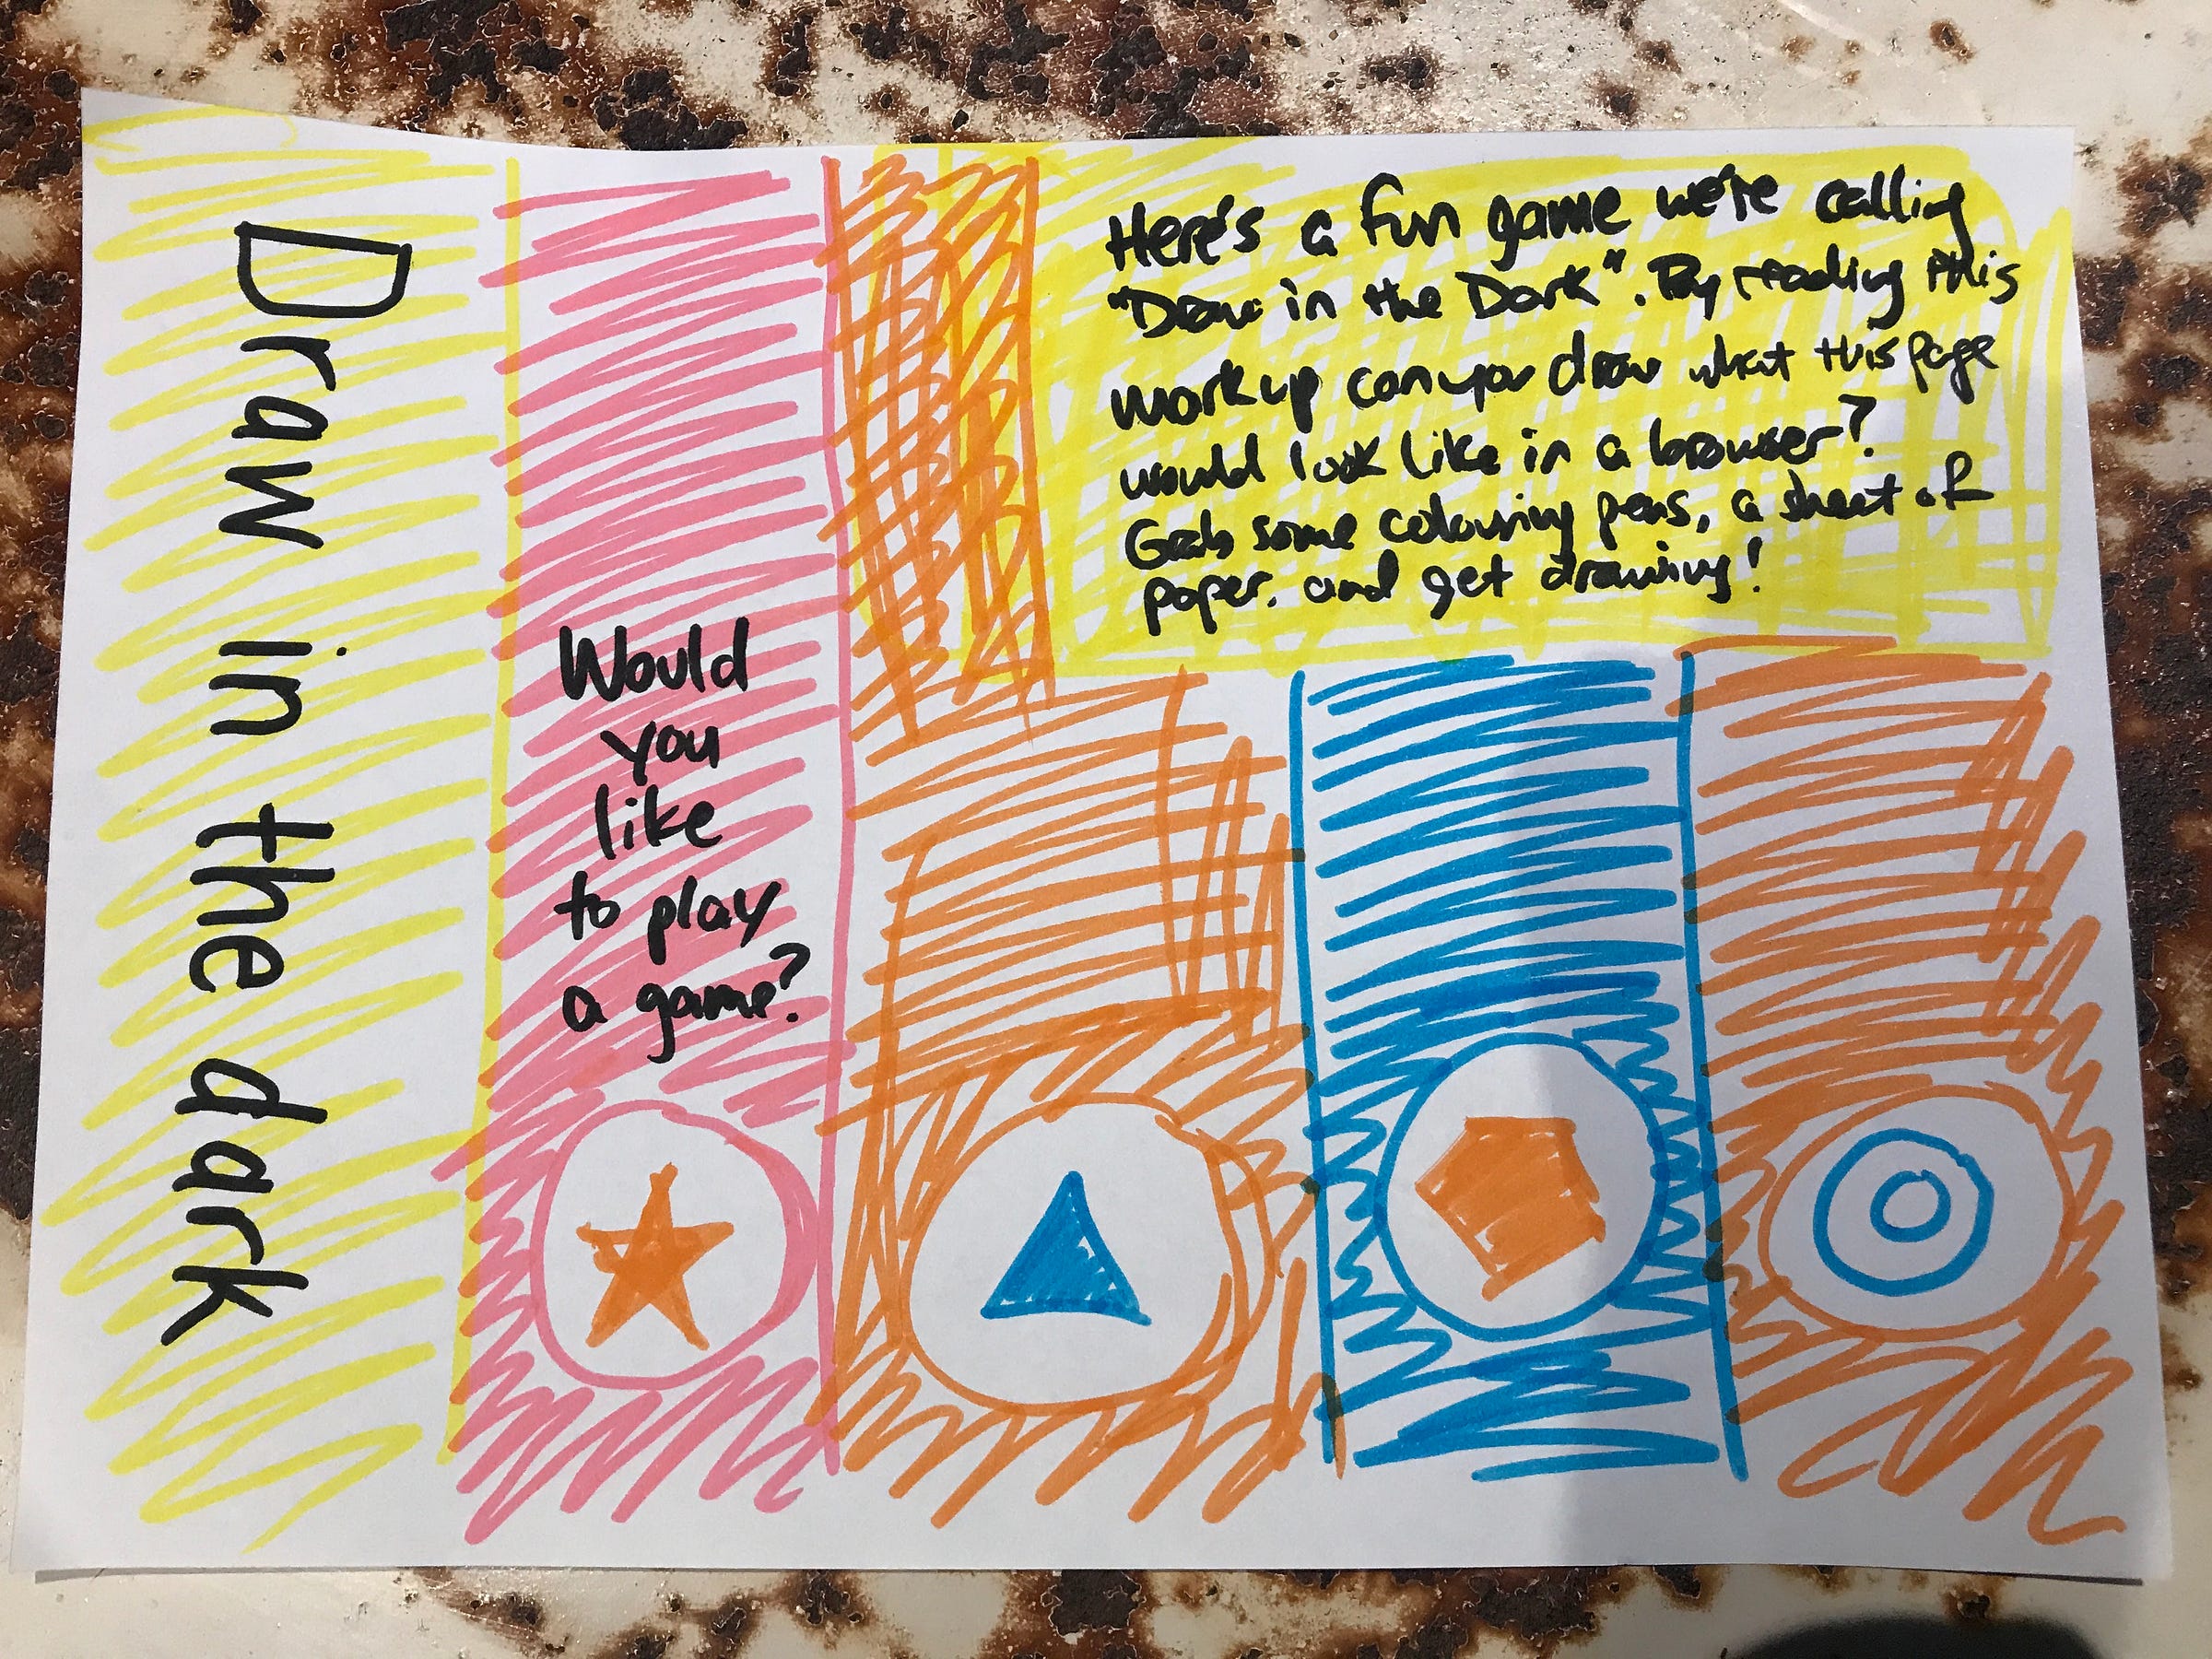 Draw in the dark
Would
you
like
to play
a game?
Here's a fun game we're calling
"Draw in the Dark". By reading this
markup can you draw what this page
would look like in a browser?
Grab some colouring pens, a sheet of
paper, and get drawing!